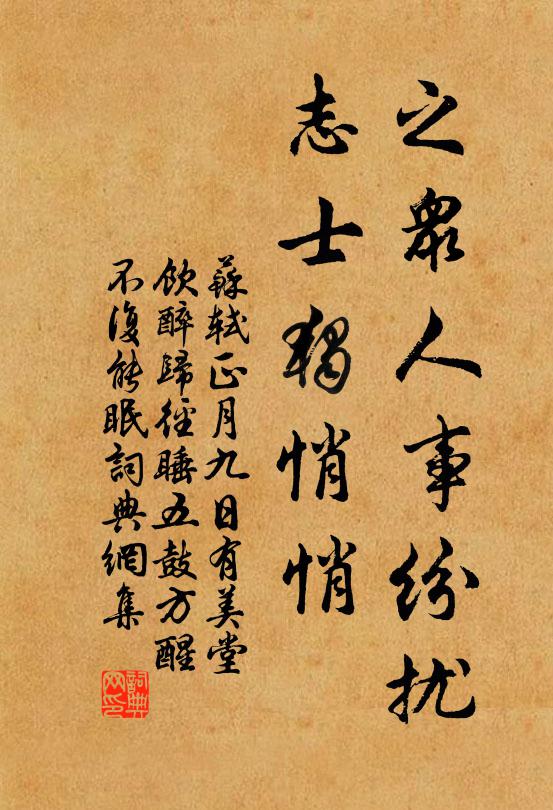 之眾人事紛扰
志士獨悄悄
蘇軾正月九日有美堂
飲醉歸徑睡五鼓方醒
不復能眠詞典網集
詞典网印